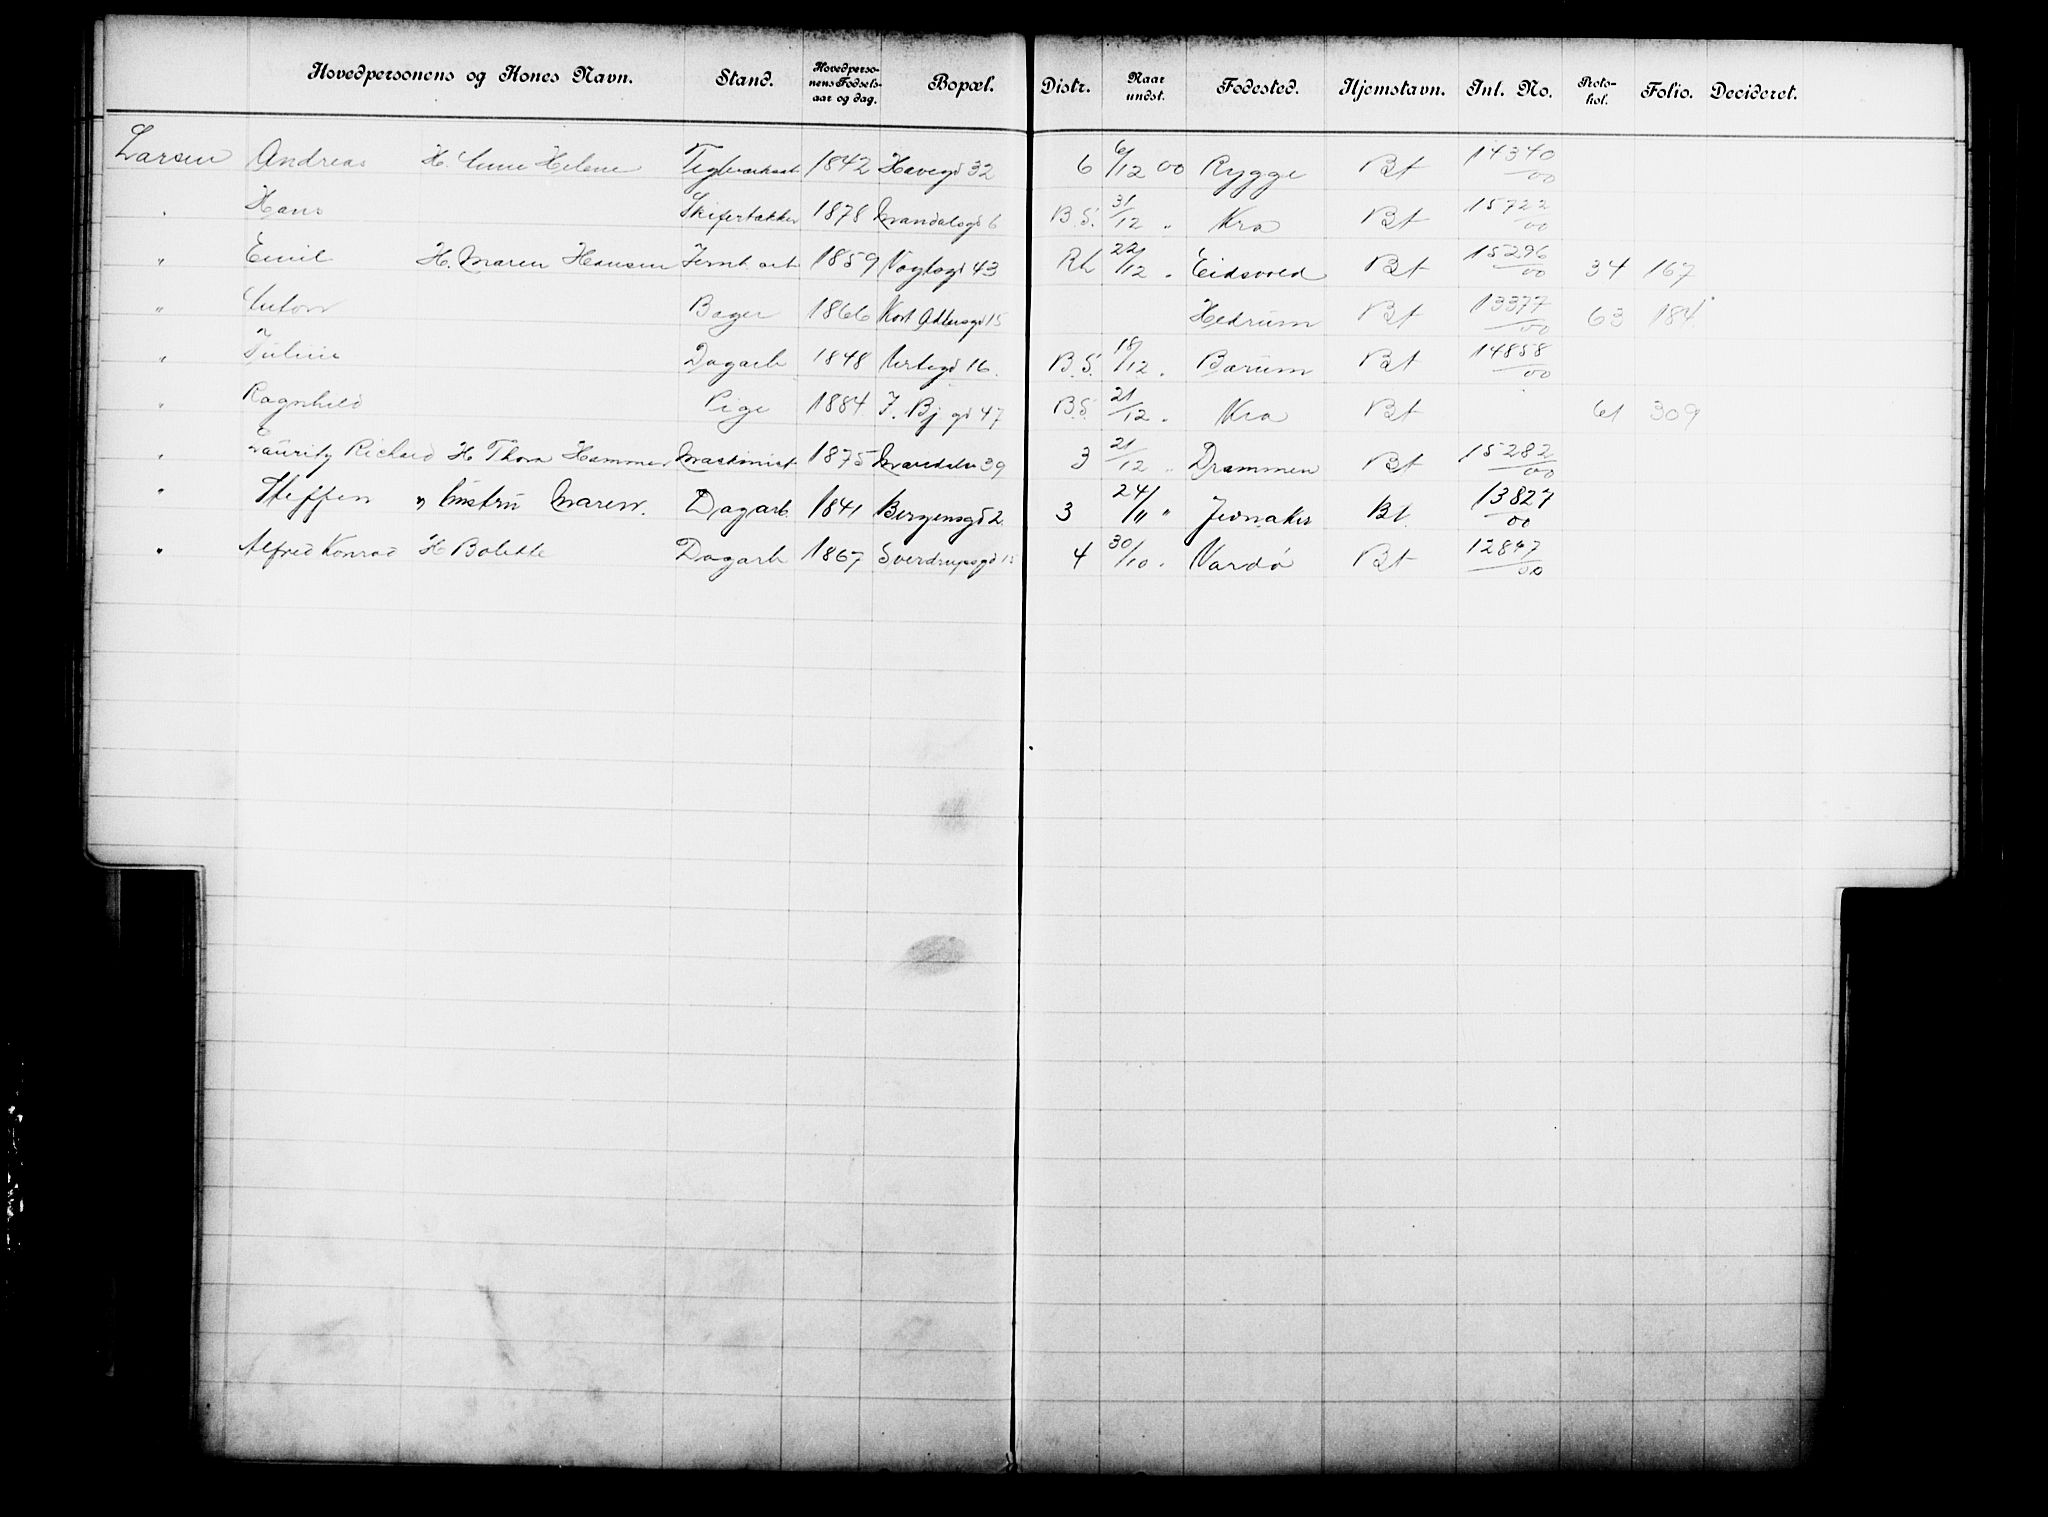 Hovedpersonens og Kones Navn. Stand. Hovedpersonens Fødselsaar og dag. Bopæl. Distr. Naar undst. Fødested. Hjemstavn. Int. No. Protokol. Folio. Decideret.
Larsen Andreas H. Anne Helene 1842 Havegd 32 6 6/12 00 Rygge Bt 14340/00
" Hans Skifertækker 1878 Mandalsgd 6 B.S. 31/12 " Kra Bt 15722/00
" Emil H. Maren Hansen Jernb. arb 1859 Vogtsgd 43 Rh 22/12 " Eidsvold Bt 15296/00 34 167
" Anton Bager 1866 Kort Adlersgd 15 Hedrum Bt 13377/00 63 184
" Dagarb 1848 Urtegd 16. B.S. 18/12 " Bærum Bt 14858/00
" Ragnhild Pige 1884 J. Bj gd 47 B.S. 21/12 " Kra Bt 61 309
" Lauritz Richard H Thora Hammer Maskinist 1875 39 3 21/12 " Drammen Bt 15282/00
" Steffen " Hustru Maren. Dagarb. 1841 Bergensgd 2. 3 24/11 " Jevnaker Bt. 13827/00
" Alfred Konrad H Bolette Dagarb 1867 Sverdrupsgd 15 4 30/10 " Vardø Bt 12847/00